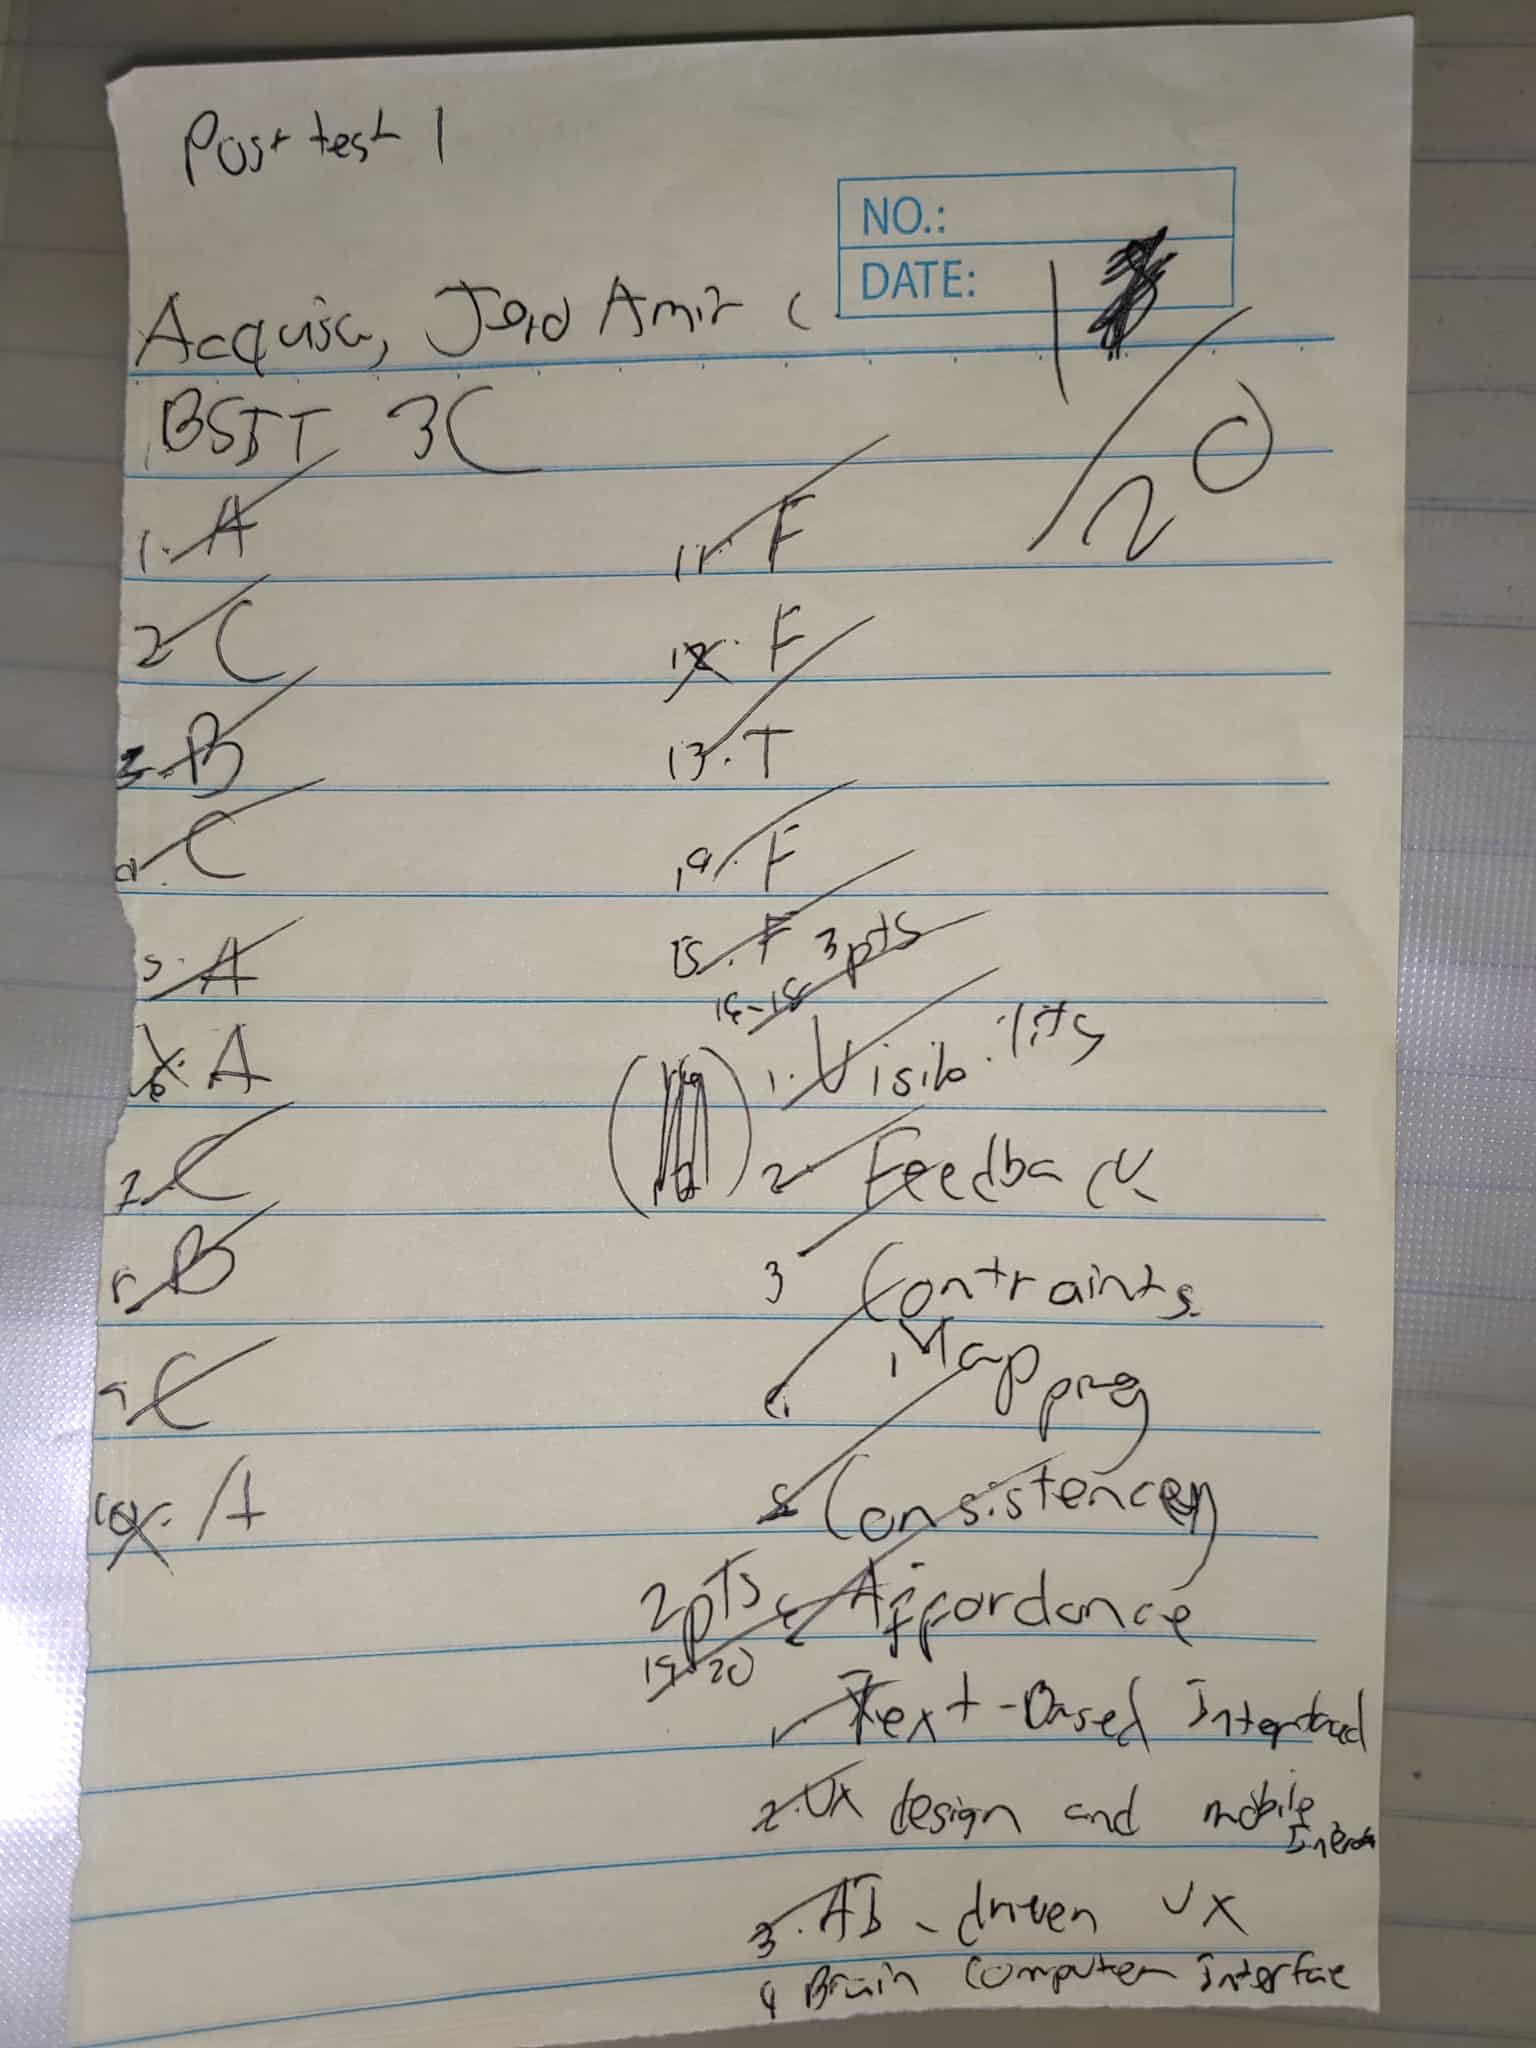 Post test 1
NO.:
DATE:
Acquisa, Amir C
BSIT 3C
/20
1. A
2 C
3. B
4. C
5. A
6. A
7 C
8 B
9 C
10. A
11. F
12. F
13. T
14. F
15. F
16-18 3pts
1. Visibility
2 Feedback
3 Contraints
4. Mapping
5 Consistencey
6 Affordance
2pts
19-20
1 Text-Based
2. UX design and mobile
3. AI-driven UX
4 Brain computer interface